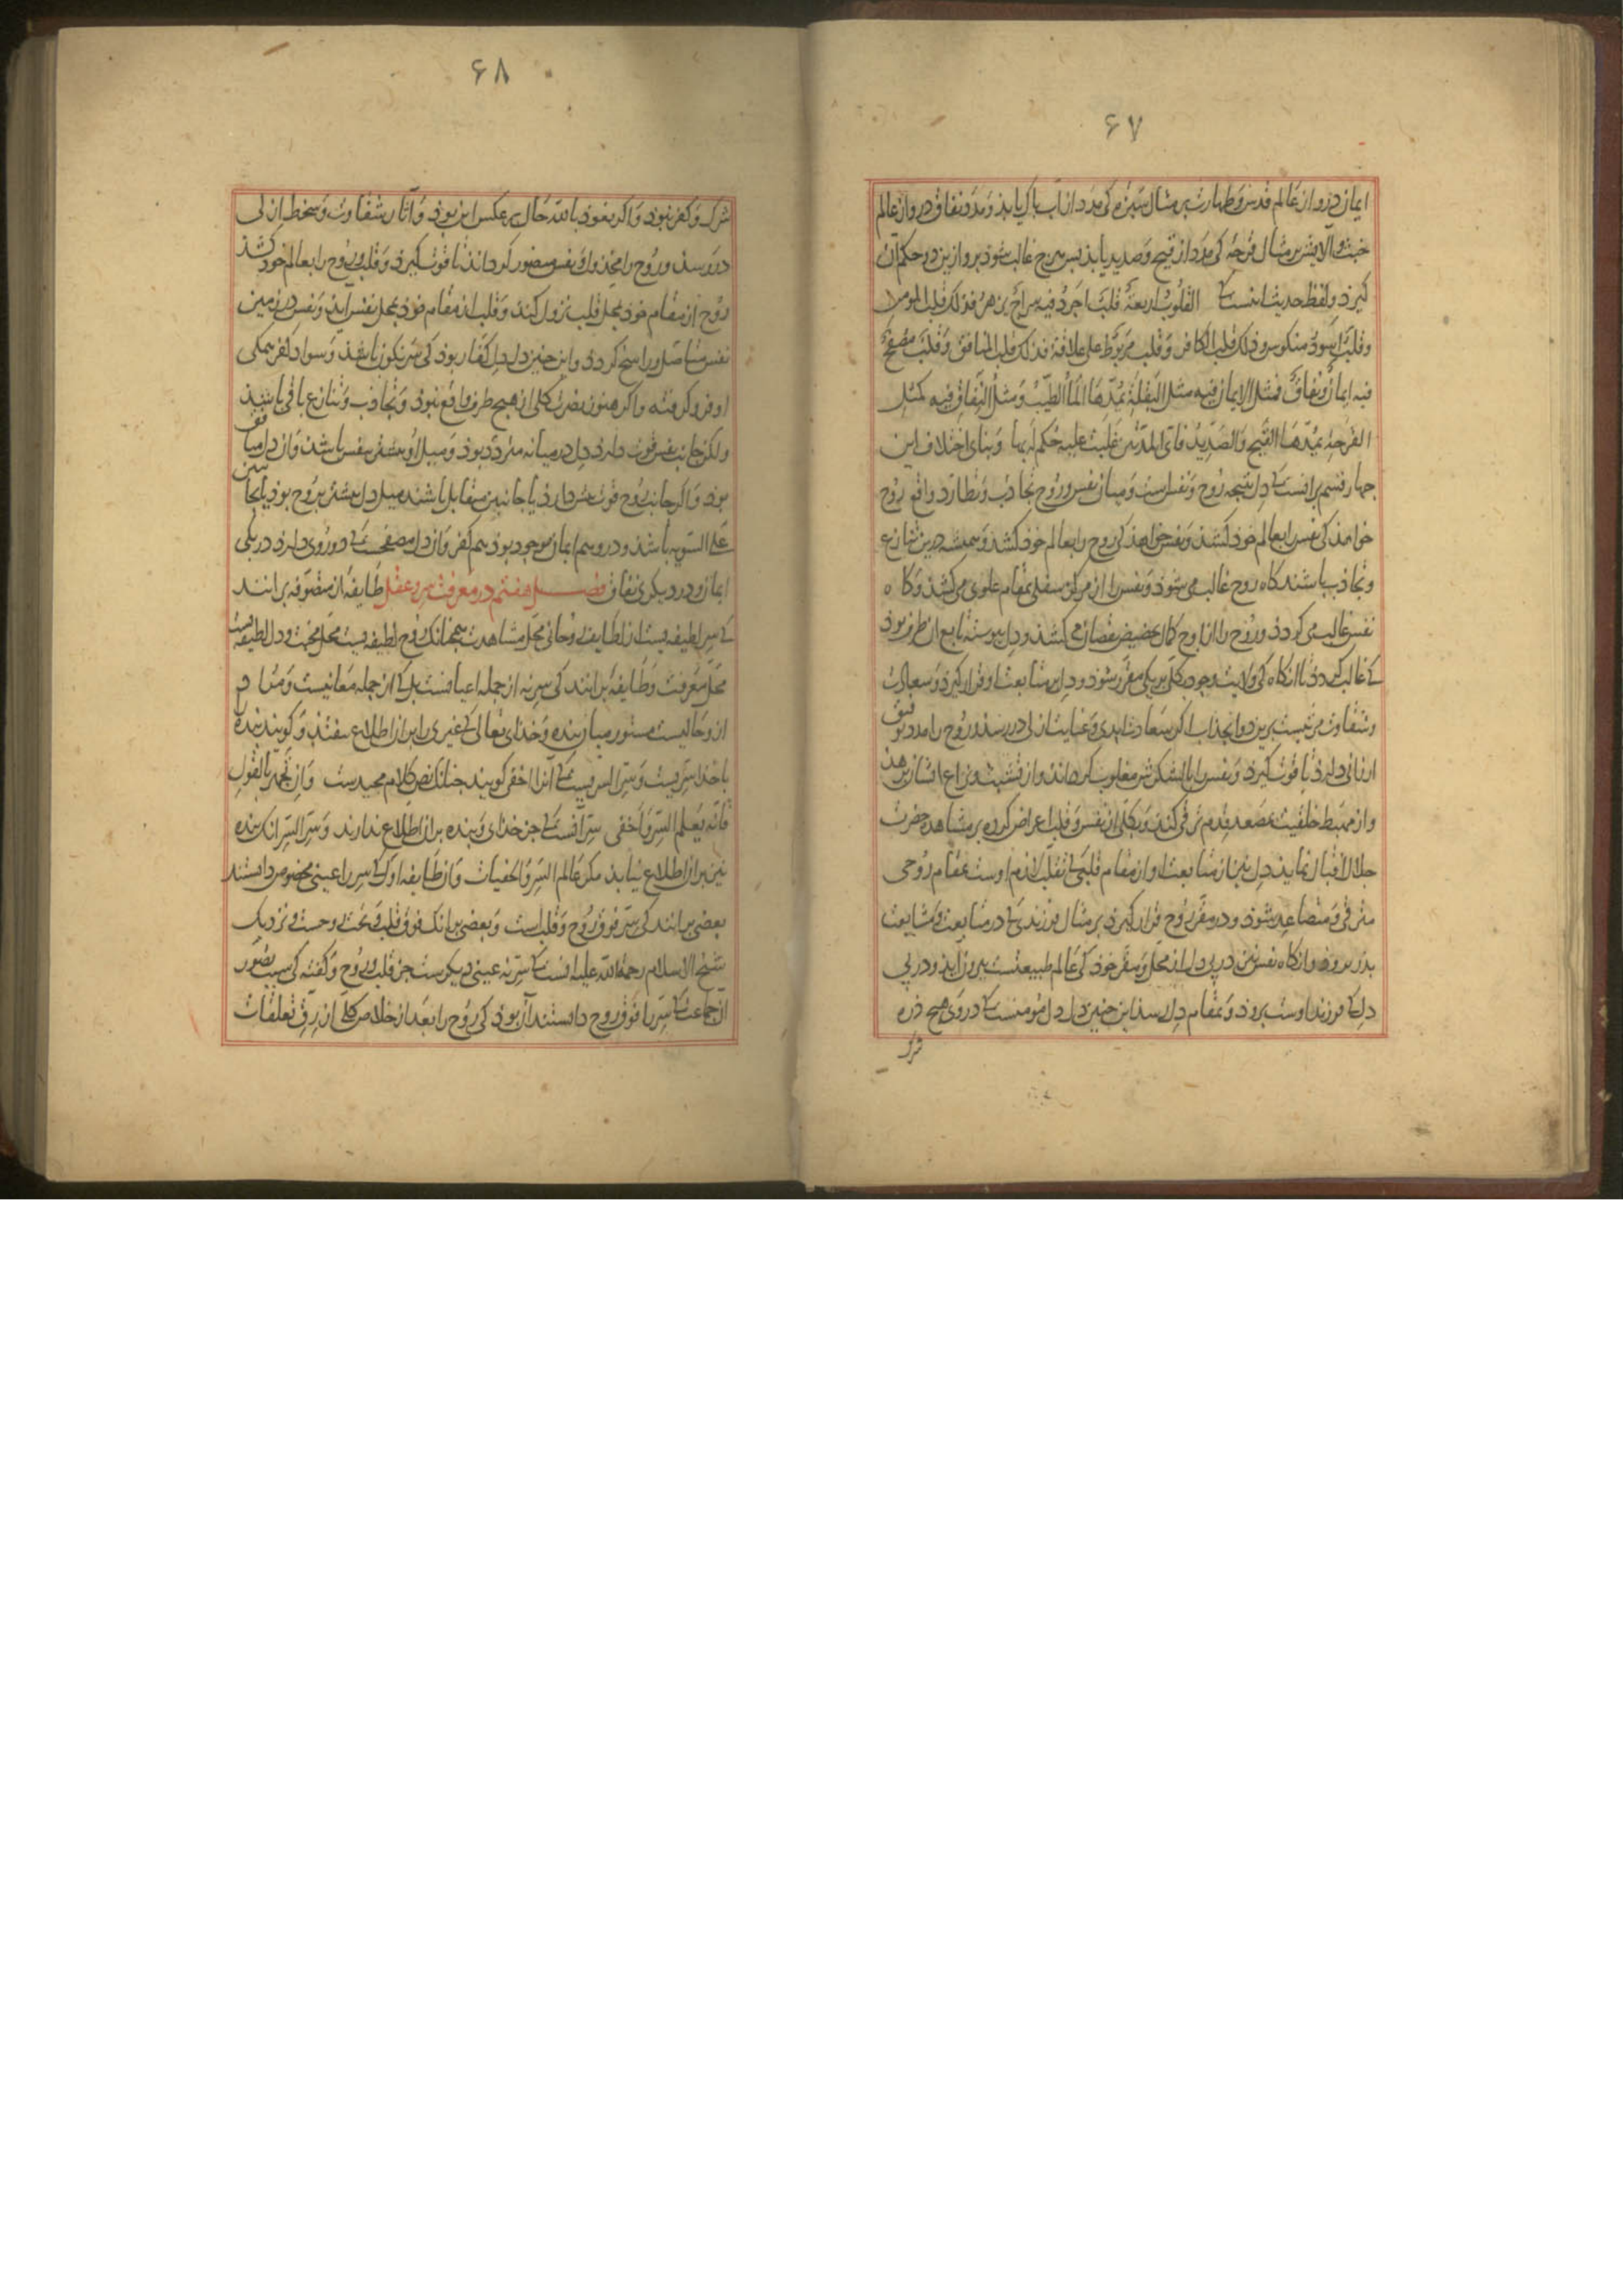 ۶۷
ایمان درو از عالم قدس و طهارت بر مثال سبزه کی مدد از آب پاک یابذ و مدد نفاق درو از عالم
خبث و آلایش بر مثال قرحهٔ کی مدد از قیح و صدید یابذ بس هرچ غالب شوذ برو ازین دو حکم آن
کیرذ و لفظ حدیث اینست کی القلوب اربعة قلب اجرد فیه سراج یزهر فذلک قلب المومن
و قلب اسود منکوس و ذلک قلب الکافر و قلب مربوط علی غلافه فذلک قلب المنافق و قلب مصفح
فیه ایمان و نفاق فمثل الایمان فیه مثل البقلة یمدها الماء الطیب و مثل النفاق فیه کمثل
القرحة یمدها القیح و الصدید فای المدتین غلبت علیه حکم له بها و بنای اختلاف این
چهار قسم بر آنست کی دل نتیجهٔ روح و نفس است و میان نفس و روح تجاذب و تطارد واقع روح
خواهذ کی نفس را بعالم خوذ کشذ و نفس خواهذ کی روح را بعالم خوذ کشذ و همیشه درین تنازع
و تجاذب باشند کاه روح غالب می شوذ و نفس را از مرکز سفلی بمقام علوی می کشذ و کاه
نفس غالب می کردذ و روح را از اوج کمال بحضیض نقصان می کشذ و دل پیوسته تابع آن طرف بوذ
کی غالب کردذ تا آنکاه کی ولایت وجود بکلی بر یکی مقرر شوذ و دل بر متابعت او قرار کیرذ و سعادت
و شقاوت مرتبست برین دو انجذاب اکر سعادت ابدی و عنایت ازلی در رسذ و روح را مدد توفیق
ارزانی دارذ تا قوت کیرذ و نفس را با لشکرش مغلوب کرداند و از تشبث و نزاع ایشان برهذ
و از مهبط خلقیت بمصعد قدم ترقی کند و بکلی از نفس و قلب اعراض کرده بر مشاهدهٔ حضرت
جلال اقبال نماید دل نیز از متابعت او از مقام قلبی کی تقلب لازم اوست بمقام روحی
مترقی و متصاعد شوذ و در مقر روح قرار کیرذ بر مثال فرزندی کی در متابعت و مشایعت
پذر بروذ و آنکاه نفس نیز در پی دل از محل و مقر خوذ کی عالم طبیعتست بیرون آیذ و در پی
دل کی فرزند اوست بروذ و بمقام دل رسذ این چنین دل دل مومنست کی در وی هیچ ذره
شرک
۶۸
شرک و کفر نبوذ و اکر نعوذ بالله حال بر عکس این بوذ و آثار شقاوت و سخط ازلی
در رسذ و روح را مخذول و نفس را منصور کرداند تا قوت کیرذ و قلب و روح را بعالم خوذ کشذ
روح از مقام خوذ بمحل قلب نزول کند و قلب از مقام خوذ بمحل نفس آیذ و نفس در زمین
نفس متاصل و راسخ کردذ و این چنین دل دل کفار بوذ کی سرنکون باشذ و سواد کفر همکی
او فرو کرفته و اکر هنوز نصرت کلی از هیچ طرف واقع نبوذ و تجاذب و تنازع باقی باشذ
ولکن جانب نفس قوت دارذ دل در میانه متردد بوذ و میل او بیشتر بنفس باشذ و آن دل منافق
بوذ و اکر جانب روح قوت بیشتر دارذ یا جانبین متقابل باشند میل دل بیشتر بروح بوذ یا بجانبین
علی السویه باشذ و درو هم ایمان موجود بوذ هم کفر و آن دل مصفحست کی دو روی دارذ در یکی
ایمان و در دیکری نفاق فصل هفتم در معرفت سر و عقل طایفهٔ از متصوفه برانند
کی سر لطیفه ییست از لطایف روحانی محل مشاهدت همچنانک روح لطیفه ییست محل محبت و دل لطیفه ییست
محل معرفت و طایفهٔ برانند کی سر نه از جمله اعیانست بل کی از جمله معانیست و مراد
ازو حالیست مستور میان بنده و خذای تعالی کی غیری را بران اطلاع نیفتذ و کویند بنده را
با خدا سرّیست و سرّ السرّیست کی آنرا اخفی کویند چنانک نص کلام مجیدست و ان تجهر بالقول
فانه یعلم السر و اخفی سر آنست کی جز خذای و بنده بران اطلاع ندارند و سر السر آنک بنده
نیز بران اطلاع نیابذ مکر عالم السر و الخفیات و از طایفه اول کی سر را عینی مخصوص دانستند
بعضی برانند کی سر فوق روح و قلب است و بعضی برانک فوق قلب و تحت روحست و نزدیک
شیخ الاسلام رحمة الله علیه آنست کی سر نه عینی دیکرست جز قلب و روح و کفته کی سبب تصور
آن جماعت کی سر را فوق روح دانستند آن بوذ کی روح را بعد از خلاص کلی از رق تعلقات